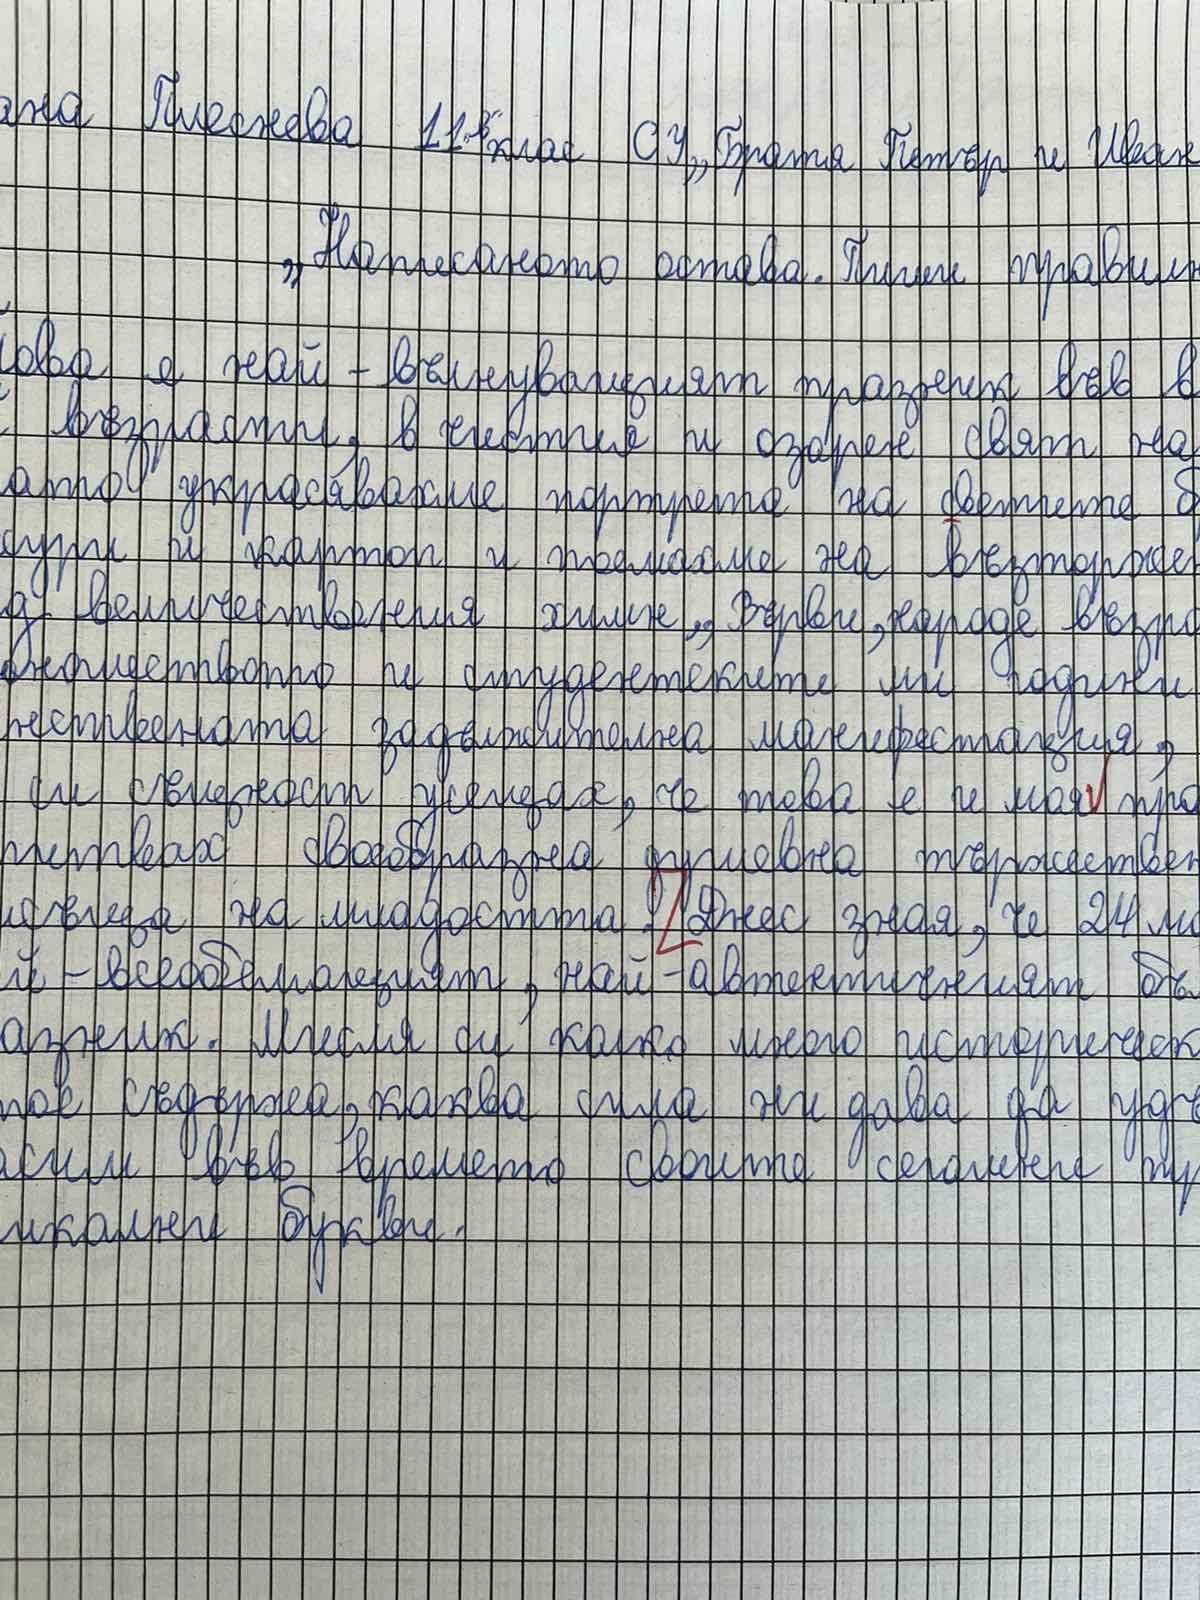 ана Плетнева 11.в клас СУ „Братя Петър и Иван
„Написаното остава. Пиши правилн
кова е най-вълнуващият празник във в
възрасти. В чистия и озарен свят на
ато украсявахме портрета на светите б
и картон и пеехме на възторжен
величествения химн „Върви, народе възро
и студентските ми години
чествената задължителна манифестация,
си същност усещах, че това е и моят пра
своеобразна душевна тържествен
на младостта. Днес зная, че 24 ма
й-всеобемащият, най-автентичният бъ
азник. Мисля си колко много историческ
съдържа, каква сила ни дава да удъ
асим във времето своите сегашни пр
никални букви.